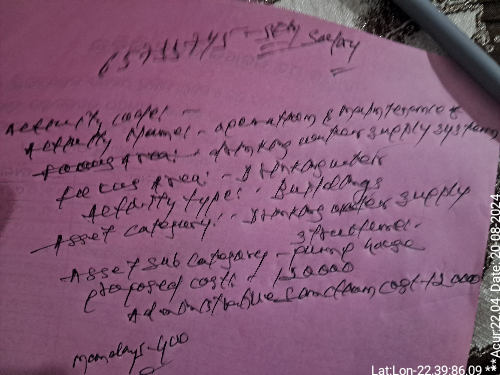 65735745 - Sky Salary
Activity code: -
Activity Name: - operation & maintenance of
drinking water supply system
Focus Area: - Drinking water
Activity type: - Buildings
Asset category: - Drinking water supply
structure
Asset sub category - pump house
proposed costs - 120000
Administrative sanction cost - 12000
Mandays - 400
Lat:Lon-22.39:86.09 **Acur:22.04 Date: 20-08-2024